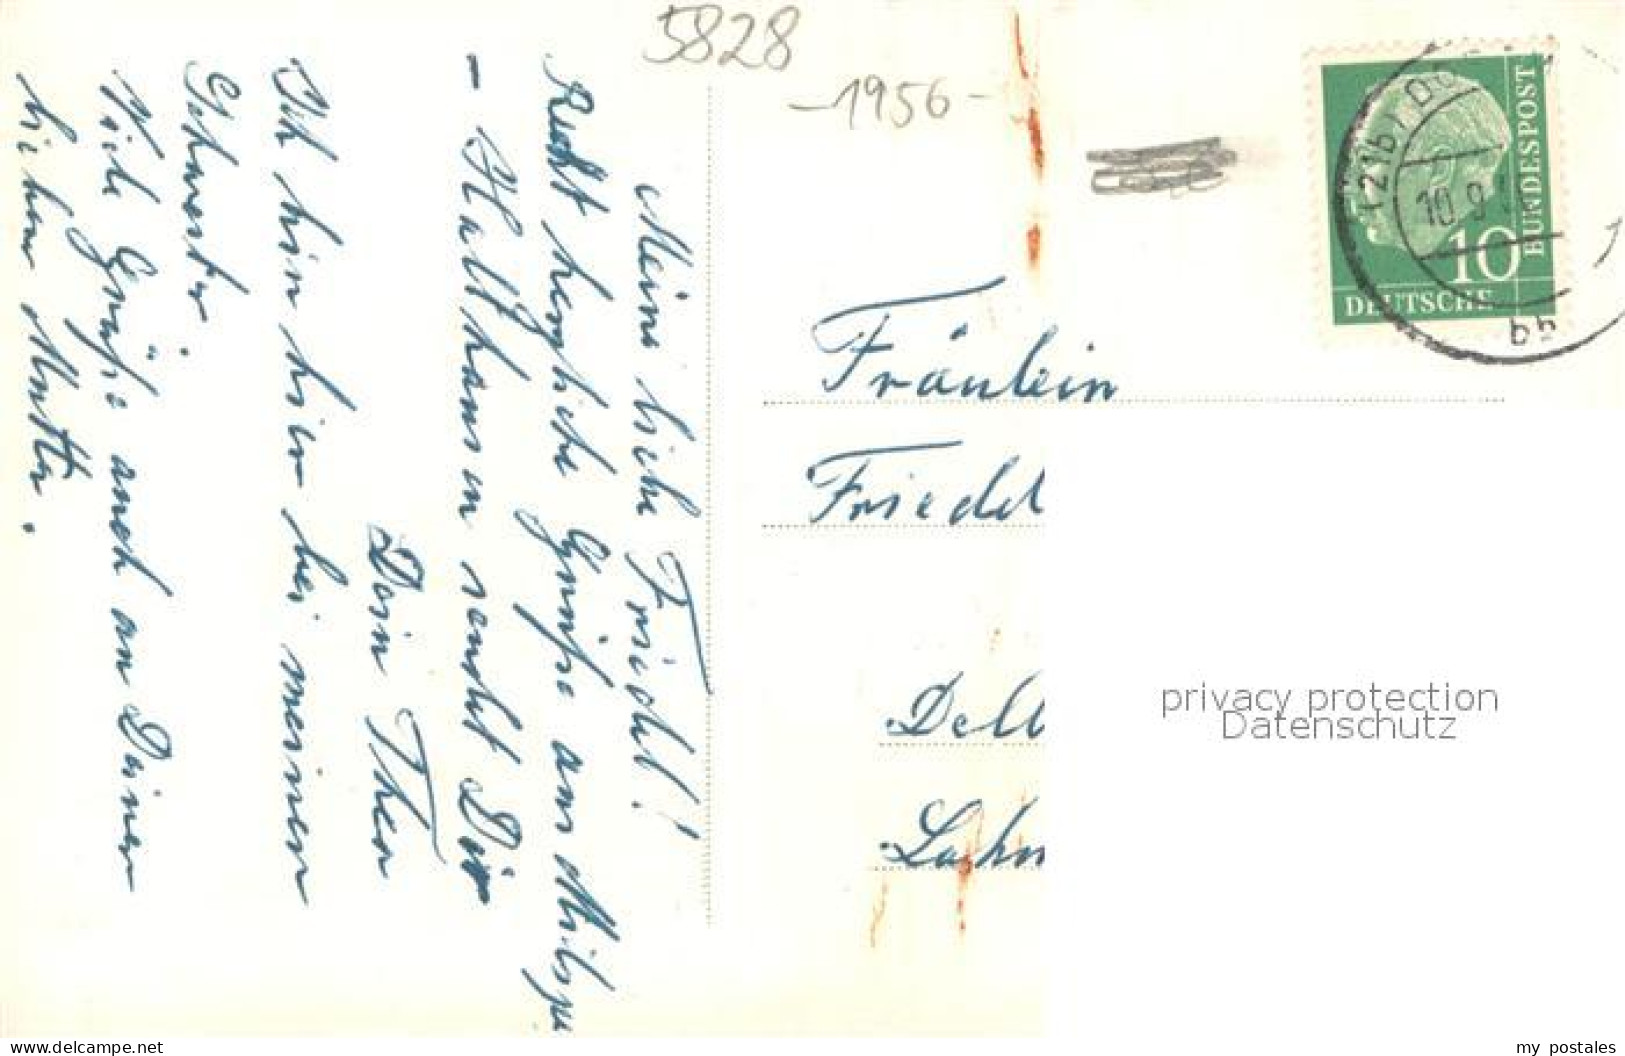 5828
-1956-
Meine liebe Friedel!
Recht herzliche Grüße aus Milspe
- Halthausen sendet Dir
Dein Theo
Ich bin hier bei meiner
Schwester.
Viele Grüße auch an Deine
liebe Mutter.
(21b) DO
10.9.
bg
10
DEUTSCHE
BUNDESPOST
Fräulein
Friedel
Dell
Lahn
privacy protection
Datenschutz
www.delcampe.net
my_postales